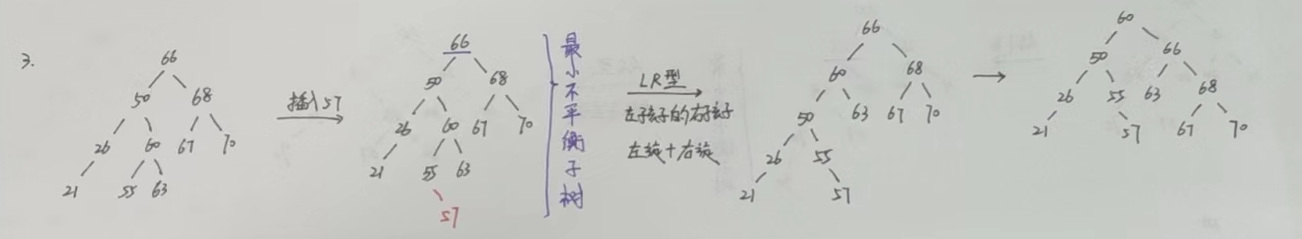 3.
66
50 68
26 60 67 70
21 55 63
插入57
66
50 68
26 60 67 70
21 55 63
57
最小不平衡子树
LR型
左孩子的右孩子
左旋+右旋
66
60 68
50 63 67 70
26 55
21 57
60
50 66
26 55 63 68
21 57 67 70